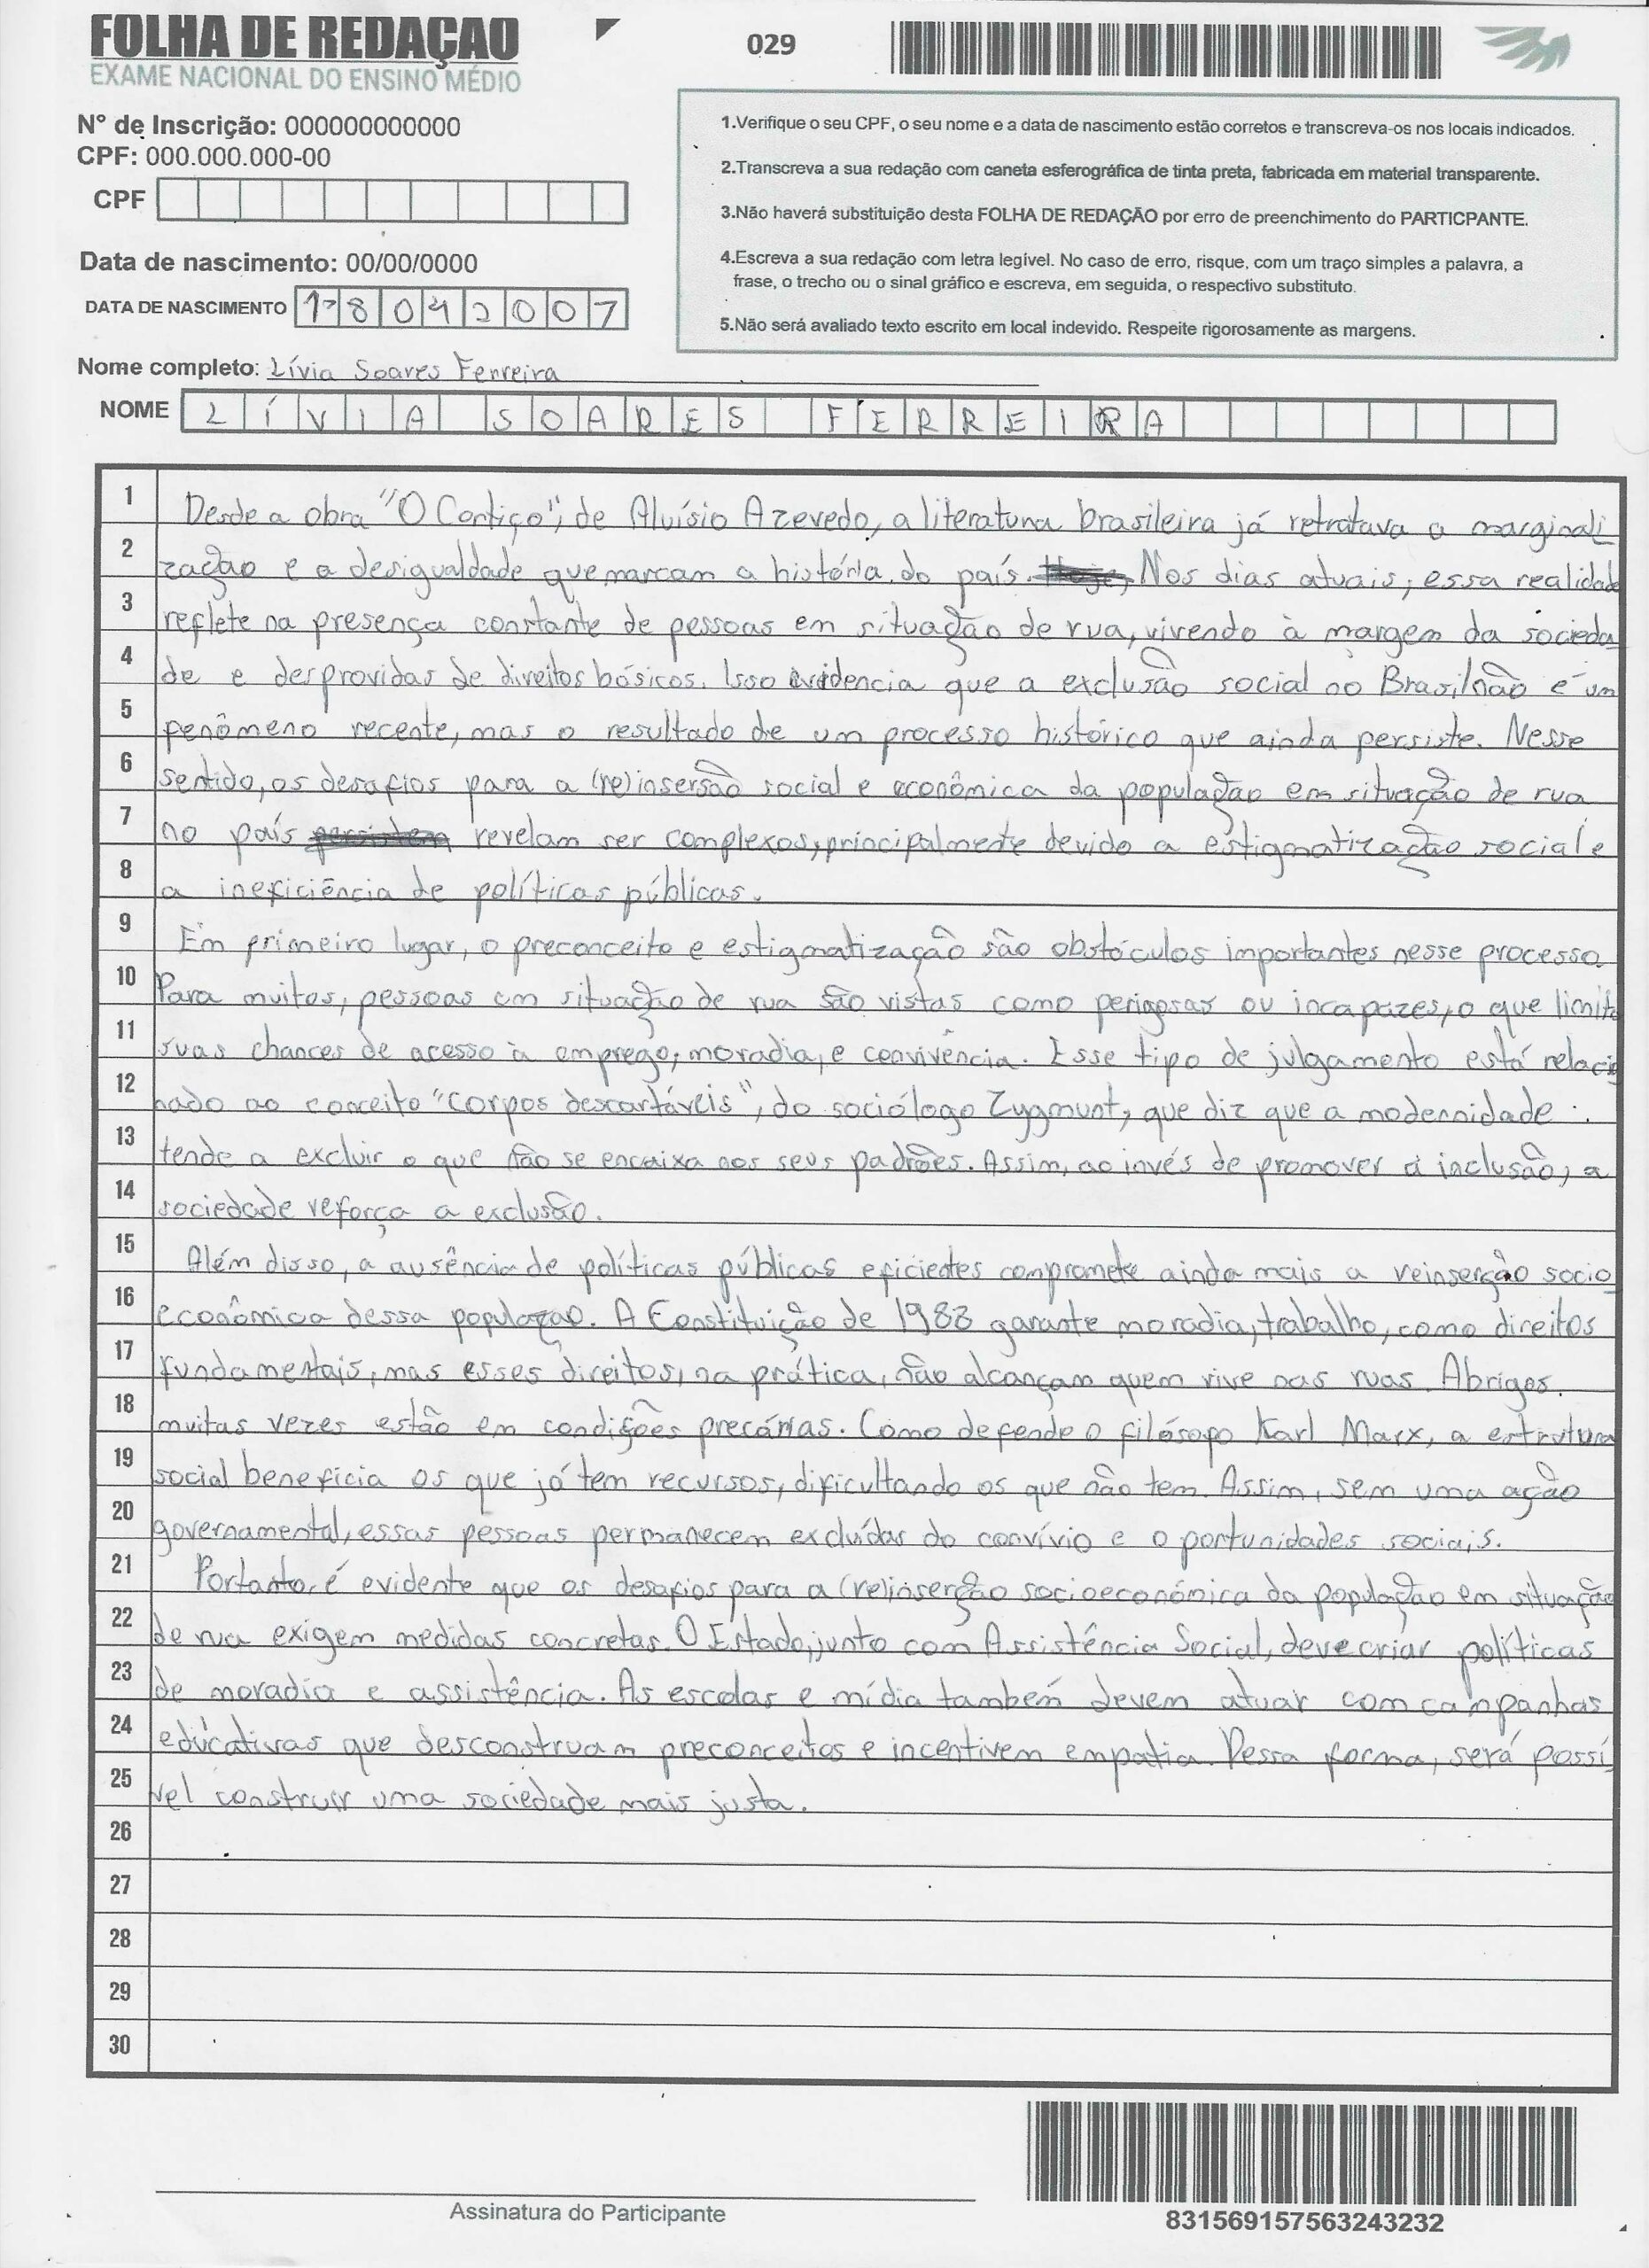 FOLHA DE REDAÇAO
EXAME NACIONAL DO ENSINO MÉDIO
029
N° de Inscrição: 000000000000
CPF: 000.000.000-00
CPF
Data de nascimento: 00/00/0000
DATA DE NASCIMENTO 18042007
1.Verifique o seu CPF, o seu nome e a data de nascimento estão corretos e transcreva-os nos locais indicados.
2.Transcreva a sua redação com caneta esferográfica de tinta preta, fabricada em material transparente.
3.Não haverá substituição desta FOLHA DE REDAÇÃO por erro de preenchimento do PARTICPANTE.
4.Escreva a sua redação com letra legível. No caso de erro, risque, com um traço simples a palavra, a
frase, o trecho ou o sinal gráfico e escreva, em seguida, o respectivo substituto.
5.Não será avaliado texto escrito em local indevido. Respeite rigorosamente as margens.
Nome completo: Lívia Soares Ferreira
NOME LÍVIA SOARES FERREIRA
1 Desde a obra "O Cortiço", de Aluísio Azevedo, a literatura brasileira já retratava a marginali
2 zação e a desigualdade que marcam a história do país. Hoje, Nos dias atuais, essa realidade
3 reflete na presença constante de pessoas em situação de rua, vivendo à margem da socieda
4 de e desprovidas de direitos básicos. Isso evidencia que a exclusão social no Brasil não é um
5 fenômeno recente, mas o resultado de um processo histórico que ainda persiste. Nesse
6 sentido, os desafios para a (re)inserção social e econômica da população em situação de rua
7 no país persistem revelam ser complexos, principalmente devido a estigmatização social e
8 a ineficiência de políticas públicas.
9 Em primeiro lugar, o preconceito e estigmatização são obstáculos importantes nesse processo.
10 Para muitos, pessoas em situação de rua são vistas como perigosas ou incapazes, o que limita
11 suas chances de acesso à emprego, moradia, e convivência. Esse tipo de julgamento está relacio
12 nado ao conceito "corpos descartáveis", do sociólogo Zygmunt, que diz que a modernidade
13 tende a excluir o que não se encaixa nos seus padrões. Assim, ao invés de promover a inclusão, a
14 sociedade reforça a exclusão.
15 Além disso, a ausência de políticas públicas eficientes compromete ainda mais a reinserção socio
16 econômica dessa população. A Constituição de 1988 garante moradia, trabalho, como direitos
17 fundamentais, mas esses direitos, na prática, não alcançam quem vive nas ruas. Abrigos
18 muitas vezes estão em condições precárias. Como defende o filósofo Karl Marx, a estrutura
19 social beneficia os que já tem recursos, dificultando os que não tem. Assim, sem uma ação
20 governamental, essas pessoas permanecem excluídas do convívio e oportunidades sociais.
21 Portanto, é evidente que os desafios para a (re)inserção socioeconômica da população em situação
22 de rua exigem medidas concretas. O Estado, junto com Assistência Social, deve criar políticas
23 de moradia e assistência. As escolas e mídia também devem atuar com campanhas
24 educativas que desconstruam preconceitos e incentivem empatia. Dessa forma, será possí
25 vel construir uma sociedade mais justa.
26
27
28
29
30
Assinatura do Participante
831569157563243232